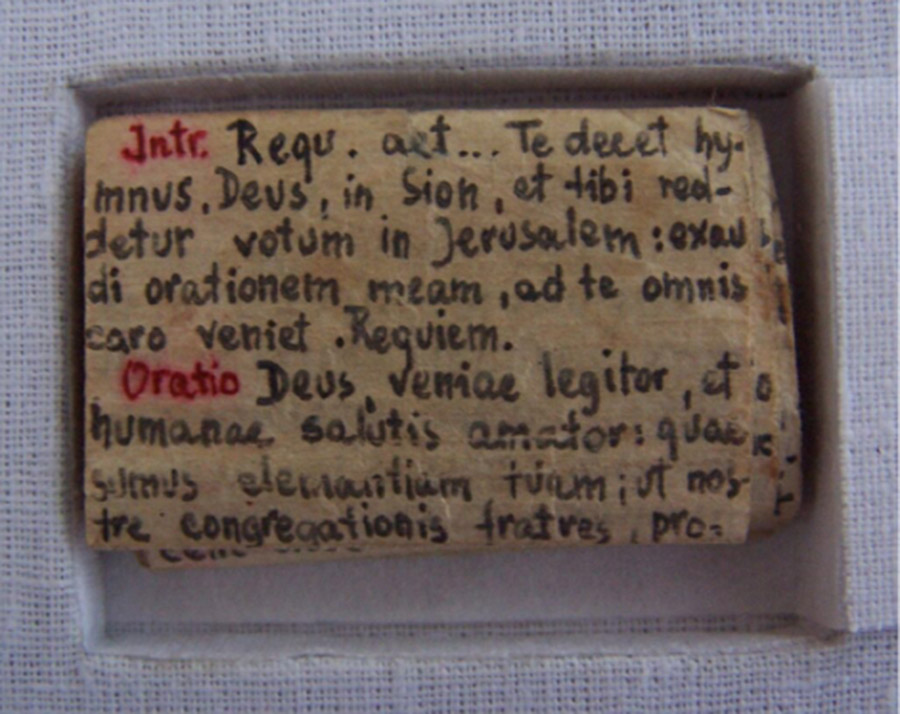 Intr. Requ. aet... Te decet hy-
mnus, Deus, in Sion, et tibi red-
detur votum in Jerusalem: exau
di orationem meam, ad te omnis
caro veniet. Requiem.
Oratio Deus, veniae legitor, et
humanae salutis amator: quae
sumus elemantiam tuam; ut nos-
tre congregationis fratres, pro-